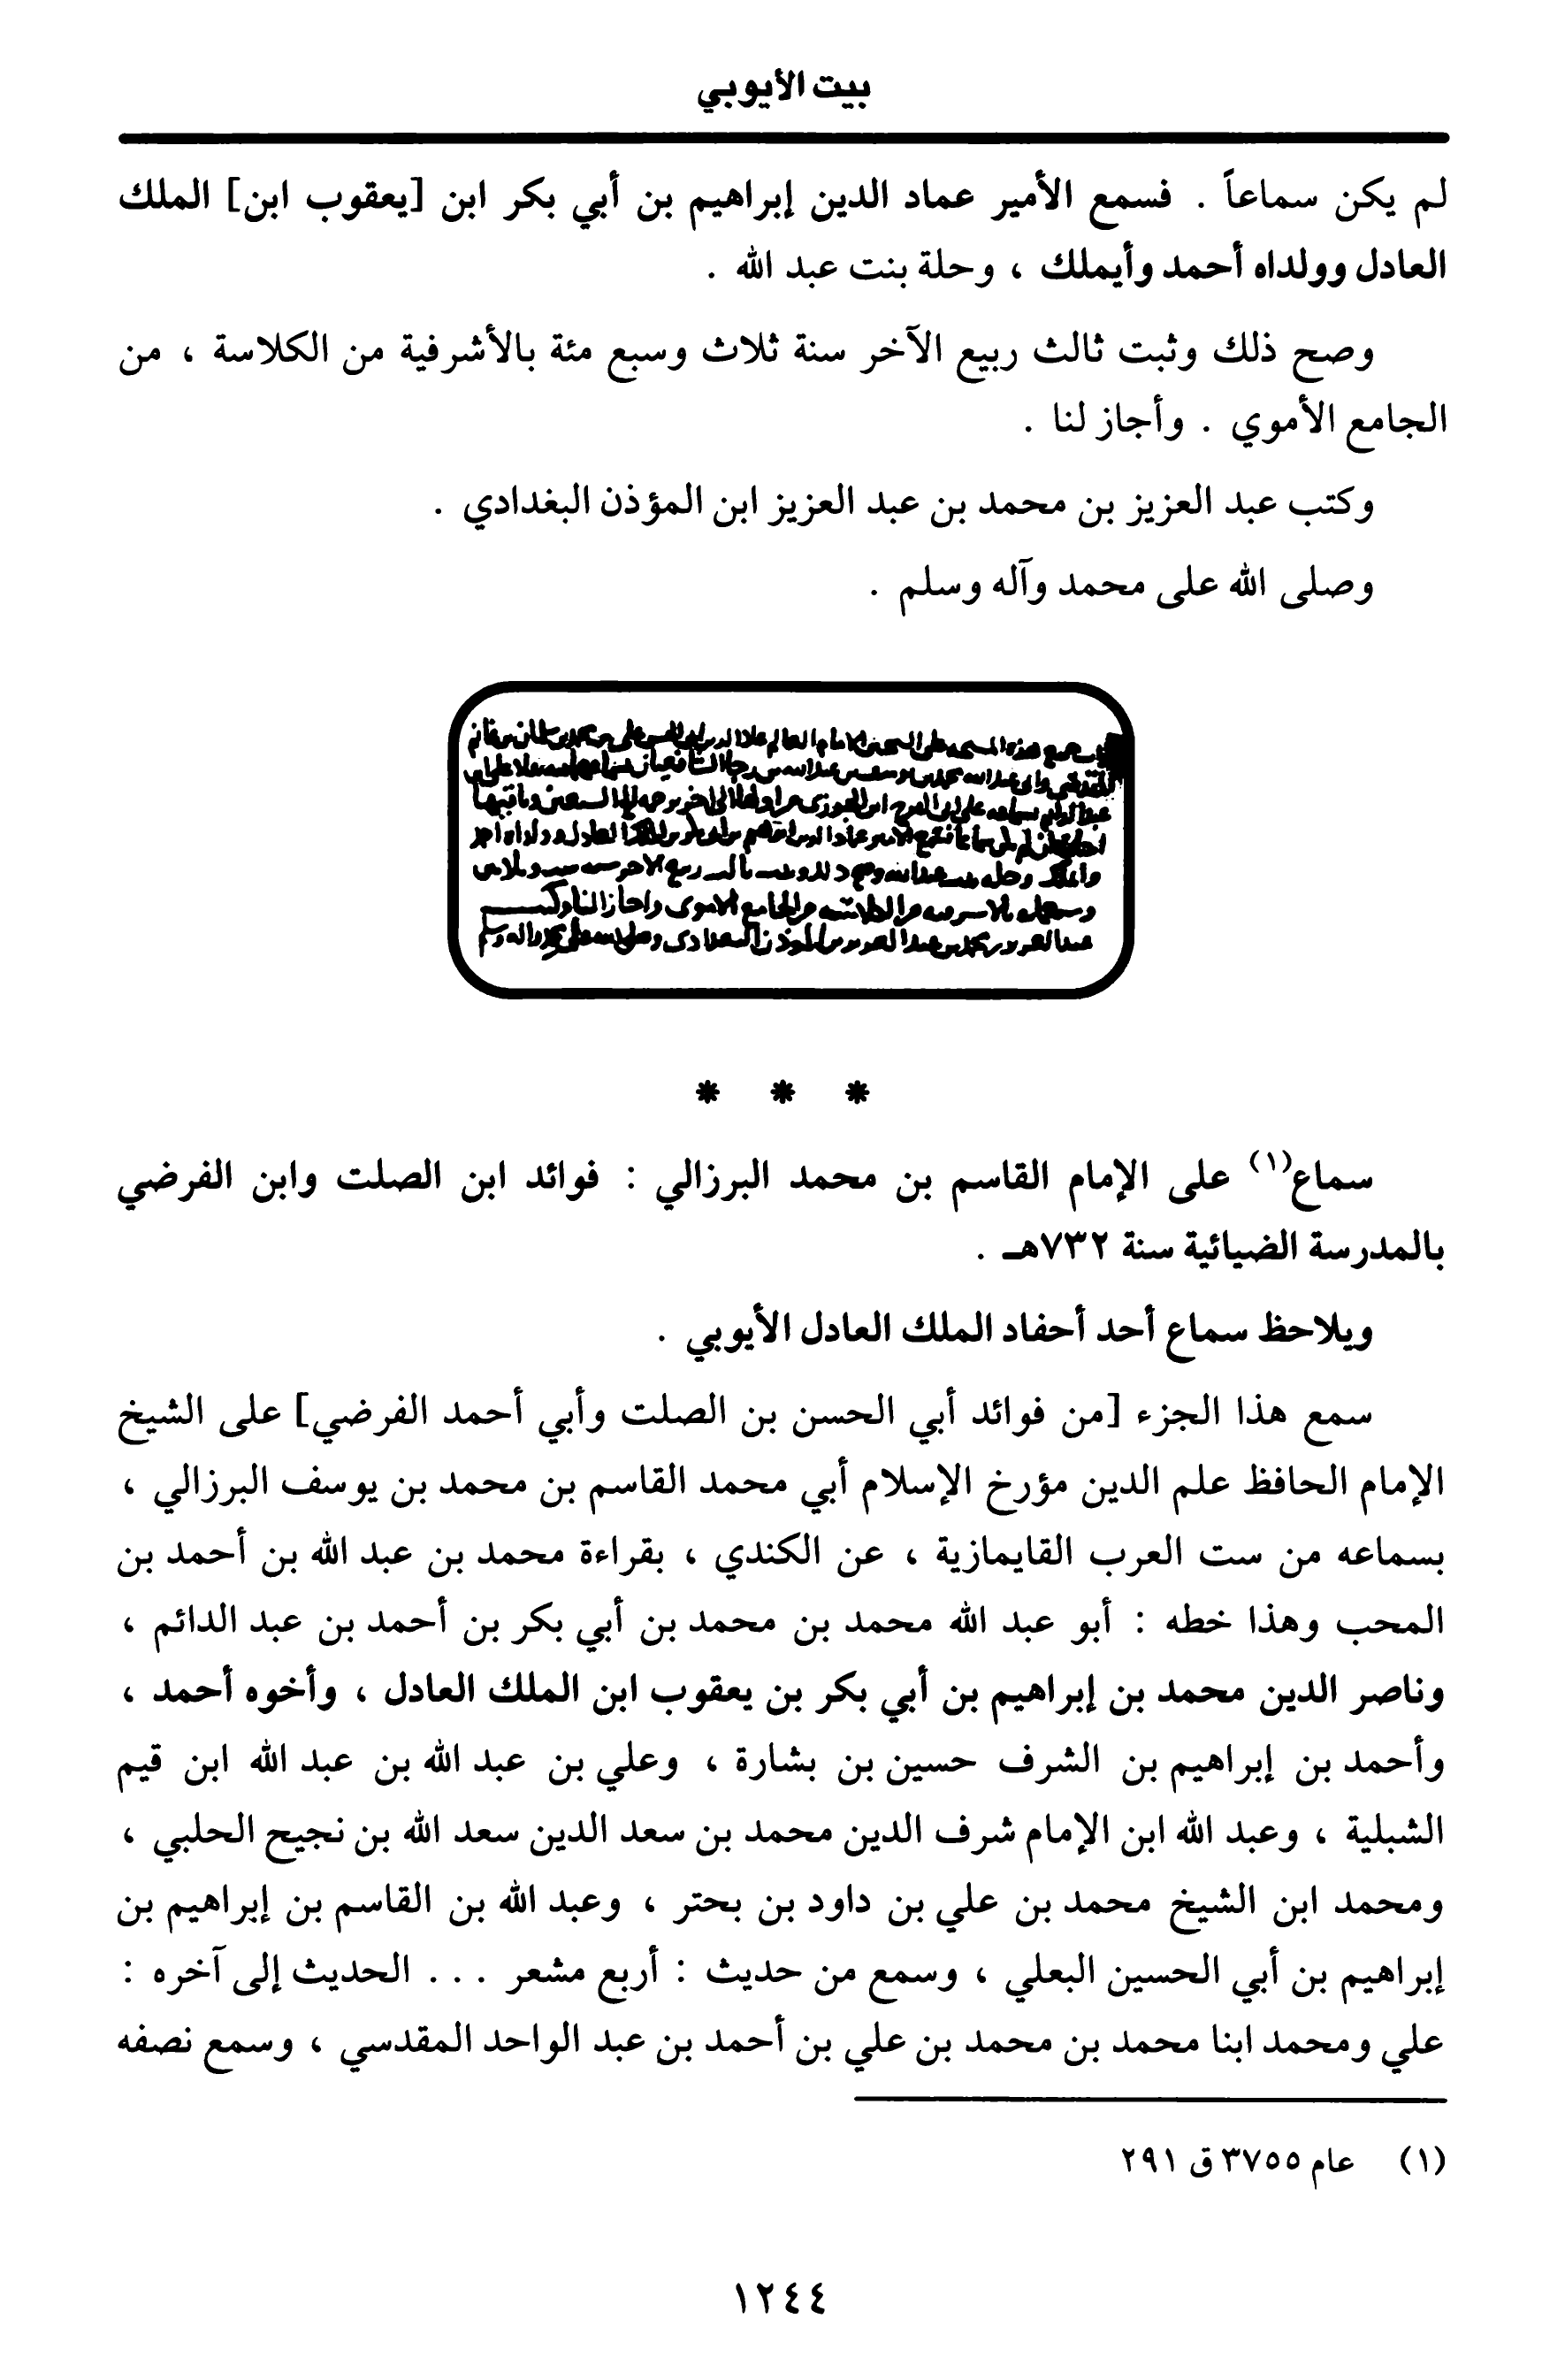 بيت الأيوبي
لم يكن سماعاً . فسمع الأمير عماد الدين إبراهيم بن أبي بكر ابن [يعقوب ابن] الملك
العادل وولداه أحمد وأيملك ، وحلة بنت عبد الله .
وصح ذلك وثبت ثالث ربيع الآخر سنة ثلاث وسبع مئة بالأشرفية من الكلاسة ، من
الجامع الأموي . وأجاز لنا .
وكتب عبد العزيز بن محمد بن عبد العزيز ابن المؤذن البغدادي .
وصلى الله على محمد وآله وسلم .
* * *
سماع(١) على الإمام القاسم بن محمد البرزالي : فوائد ابن الصلت وابن الفرضي
بالمدرسة الضيائية سنة ٧٣٢هـ .
ويلاحظ سماع أحد أحفاد الملك العادل الأيوبي .
سمع هذا الجزء [من فوائد أبي الحسن بن الصلت وأبي أحمد الفرضي] على الشيخ
الإمام الحافظ علم الدين مؤرخ الإسلام أبي محمد القاسم بن محمد بن يوسف البرزالي ،
بسماعه من ست العرب القايمازية ، عن الكندي ، بقراءة محمد بن عبد الله بن أحمد بن
المحب وهذا خطه : أبو عبد الله محمد بن محمد بن أبي بكر بن أحمد بن عبد الدائم ،
وناصر الدين محمد بن إبراهيم بن أبي بكر بن يعقوب ابن الملك العادل ، وأخوه أحمد ،
وأحمد بن إبراهيم بن الشرف حسين بن بشارة ، وعلي بن عبد الله بن عبد الله ابن قيم
الشبلية ، وعبد الله ابن الإمام شرف الدين محمد بن سعد الدين سعد الله بن نجيح الحلبي ،
ومحمد ابن الشيخ محمد بن علي بن داود بن بحتر ، وعبد الله بن القاسم بن إبراهيم بن
إبراهيم بن أبي الحسين البعلي ، وسمع من حديث : أربع مشعر . . . الحديث إلى آخره :
علي ومحمد ابنا محمد بن محمد بن علي بن أحمد بن عبد الواحد المقدسي ، وسمع نصفه
(١) عام ٣٧٥٥ ق ٢٩١
١٢٤٤